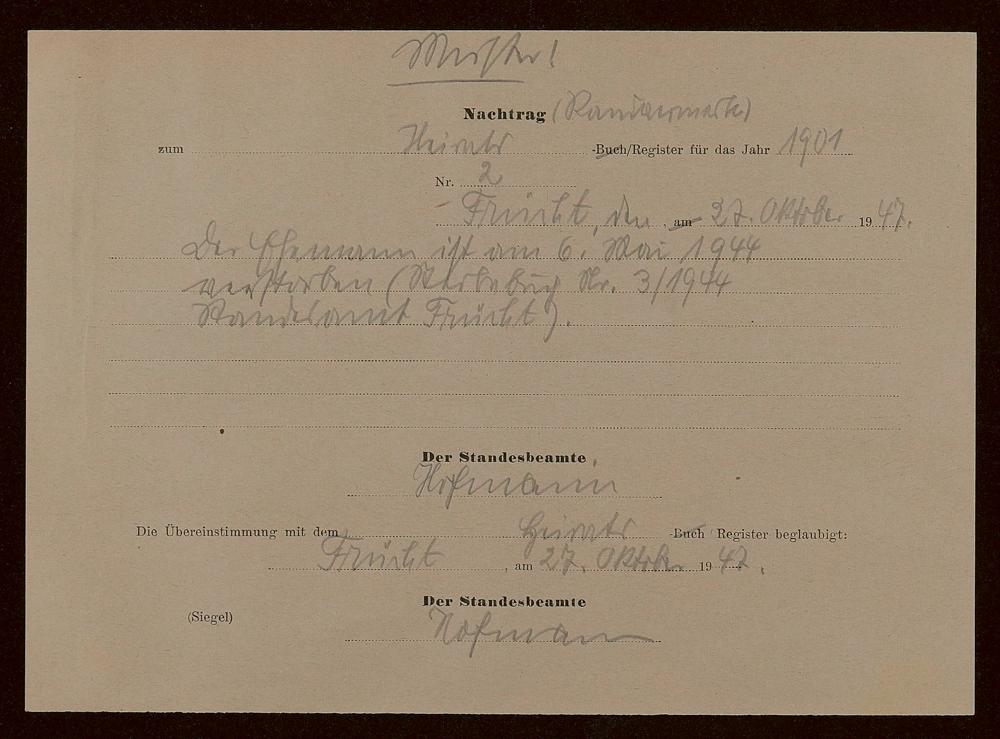 Muster!
Nachtrag (Randvermerk)
zum Heirats -Buch/Register für das Jahr 1901
Nr. 2
Frücht, den am 27. Oktober 1947.
Der Ehemann ist am 6. Mai 1944
verstorben (Sterbebuch Nr. 3/1944
Standesamt Frücht).
Der Standesbeamte
Hofmann
Die Übereinstimmung mit dem Heirats -Buch Register beglaubigt:
Frücht, am 27. Oktober 1947.
Der Standesbeamte
(Siegel)
Hofmann